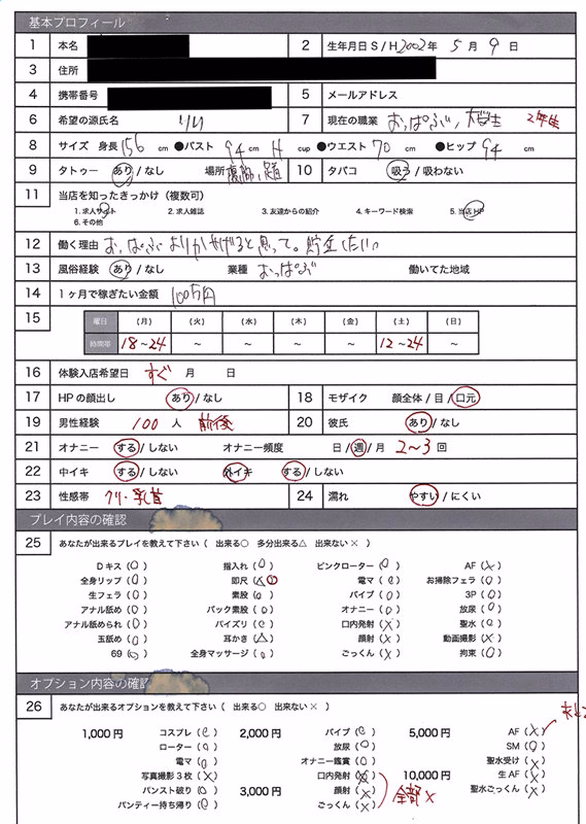 基本プロフィール
1 本名
2 生年月日 S / H 2002年 5月 9日
3 住所
4 携帯番号
5 メールアドレス
6 希望の源氏名 りり
7 現在の職業 おっぱぶ/ 2年生
8 サイズ 身長156cm ●バスト94cm H cup ●ウエスト70cm ●ヒップ94cm
9 タトゥー あり / なし 場所
10 タバコ 吸う / 吸わない
11 当店を知ったきっかけ(複数可)
1. 求人サイト 2. 求人雑誌 3. 友達からの紹介 4. キーワード検索 5. 当店HP
6. その他
12 働く理由 おっぱぶよりかせげると思って。貯金したい
13 風俗経験 あり / なし 業種 おっぱぶ 働いてた地域
14 1ヶ月で稼ぎたい金額 100万円
15
曜日 (月) (火) (水) (木) (金) (土) (日)
時間帯 18~24 ~ ~ ~ ~ 12~24 ~
16 体験入店希望日 すぐ 月 日
17 HPの顔出し あり / なし
18 モザイク 顔全体 / 目 / 口元
19 男性経験 100人 前後
20 彼氏 あり / なし
21 オナニー する / しない オナニー頻度 日 / 週 / 月 2~3回
22 中イキ する / しない 外イキ する / しない
23 性感帯 クリ・乳首
24 濡れ やすい / にくい
プレイ内容の確認
25 あなたが出来るプレイを教えて下さい( 出来る○ 多分出来る△ 出来ない× )
Dキス (○) 指入れ (○) ピンクローター (○) AF (×)
全身リップ (○) 即尺 (△)○ 電マ (○) お掃除フェラ (○)
生フェラ (○) 素股 (○) バイブ (○) 3P (○)
アナル舐め (○) バック素股 (○) オナニー (○) 放尿 (○)
アナル舐められ (○) パイズリ (○) 口内発射 (×) 聖水 (○)
玉舐め (○) 耳かき (△) 顔射 (×) 動画撮影 (×)
69 (○) 全身マッサージ (○) ごっくん (×) 拘束 (○)
オプション内容の確認
26 あなたが出来るオプションを教えて下さい( 出来る○ 出来ない× )
1,000円 コスプレ (○) 2,000円 バイブ (○) 5,000円 AF (×)
ローター (○) 放尿 (○) SM (○)
電マ (○) オナニー鑑賞 (○) 聖水受け (×)
写真撮影3枚 (×) 口内発射 (×) 10,000円 生AF (×)
パンスト破り (○) 3,000円 顔射 (×) 全部× 聖水ごっくん (×)
パンティー持ち帰り (○) ごっくん (×)